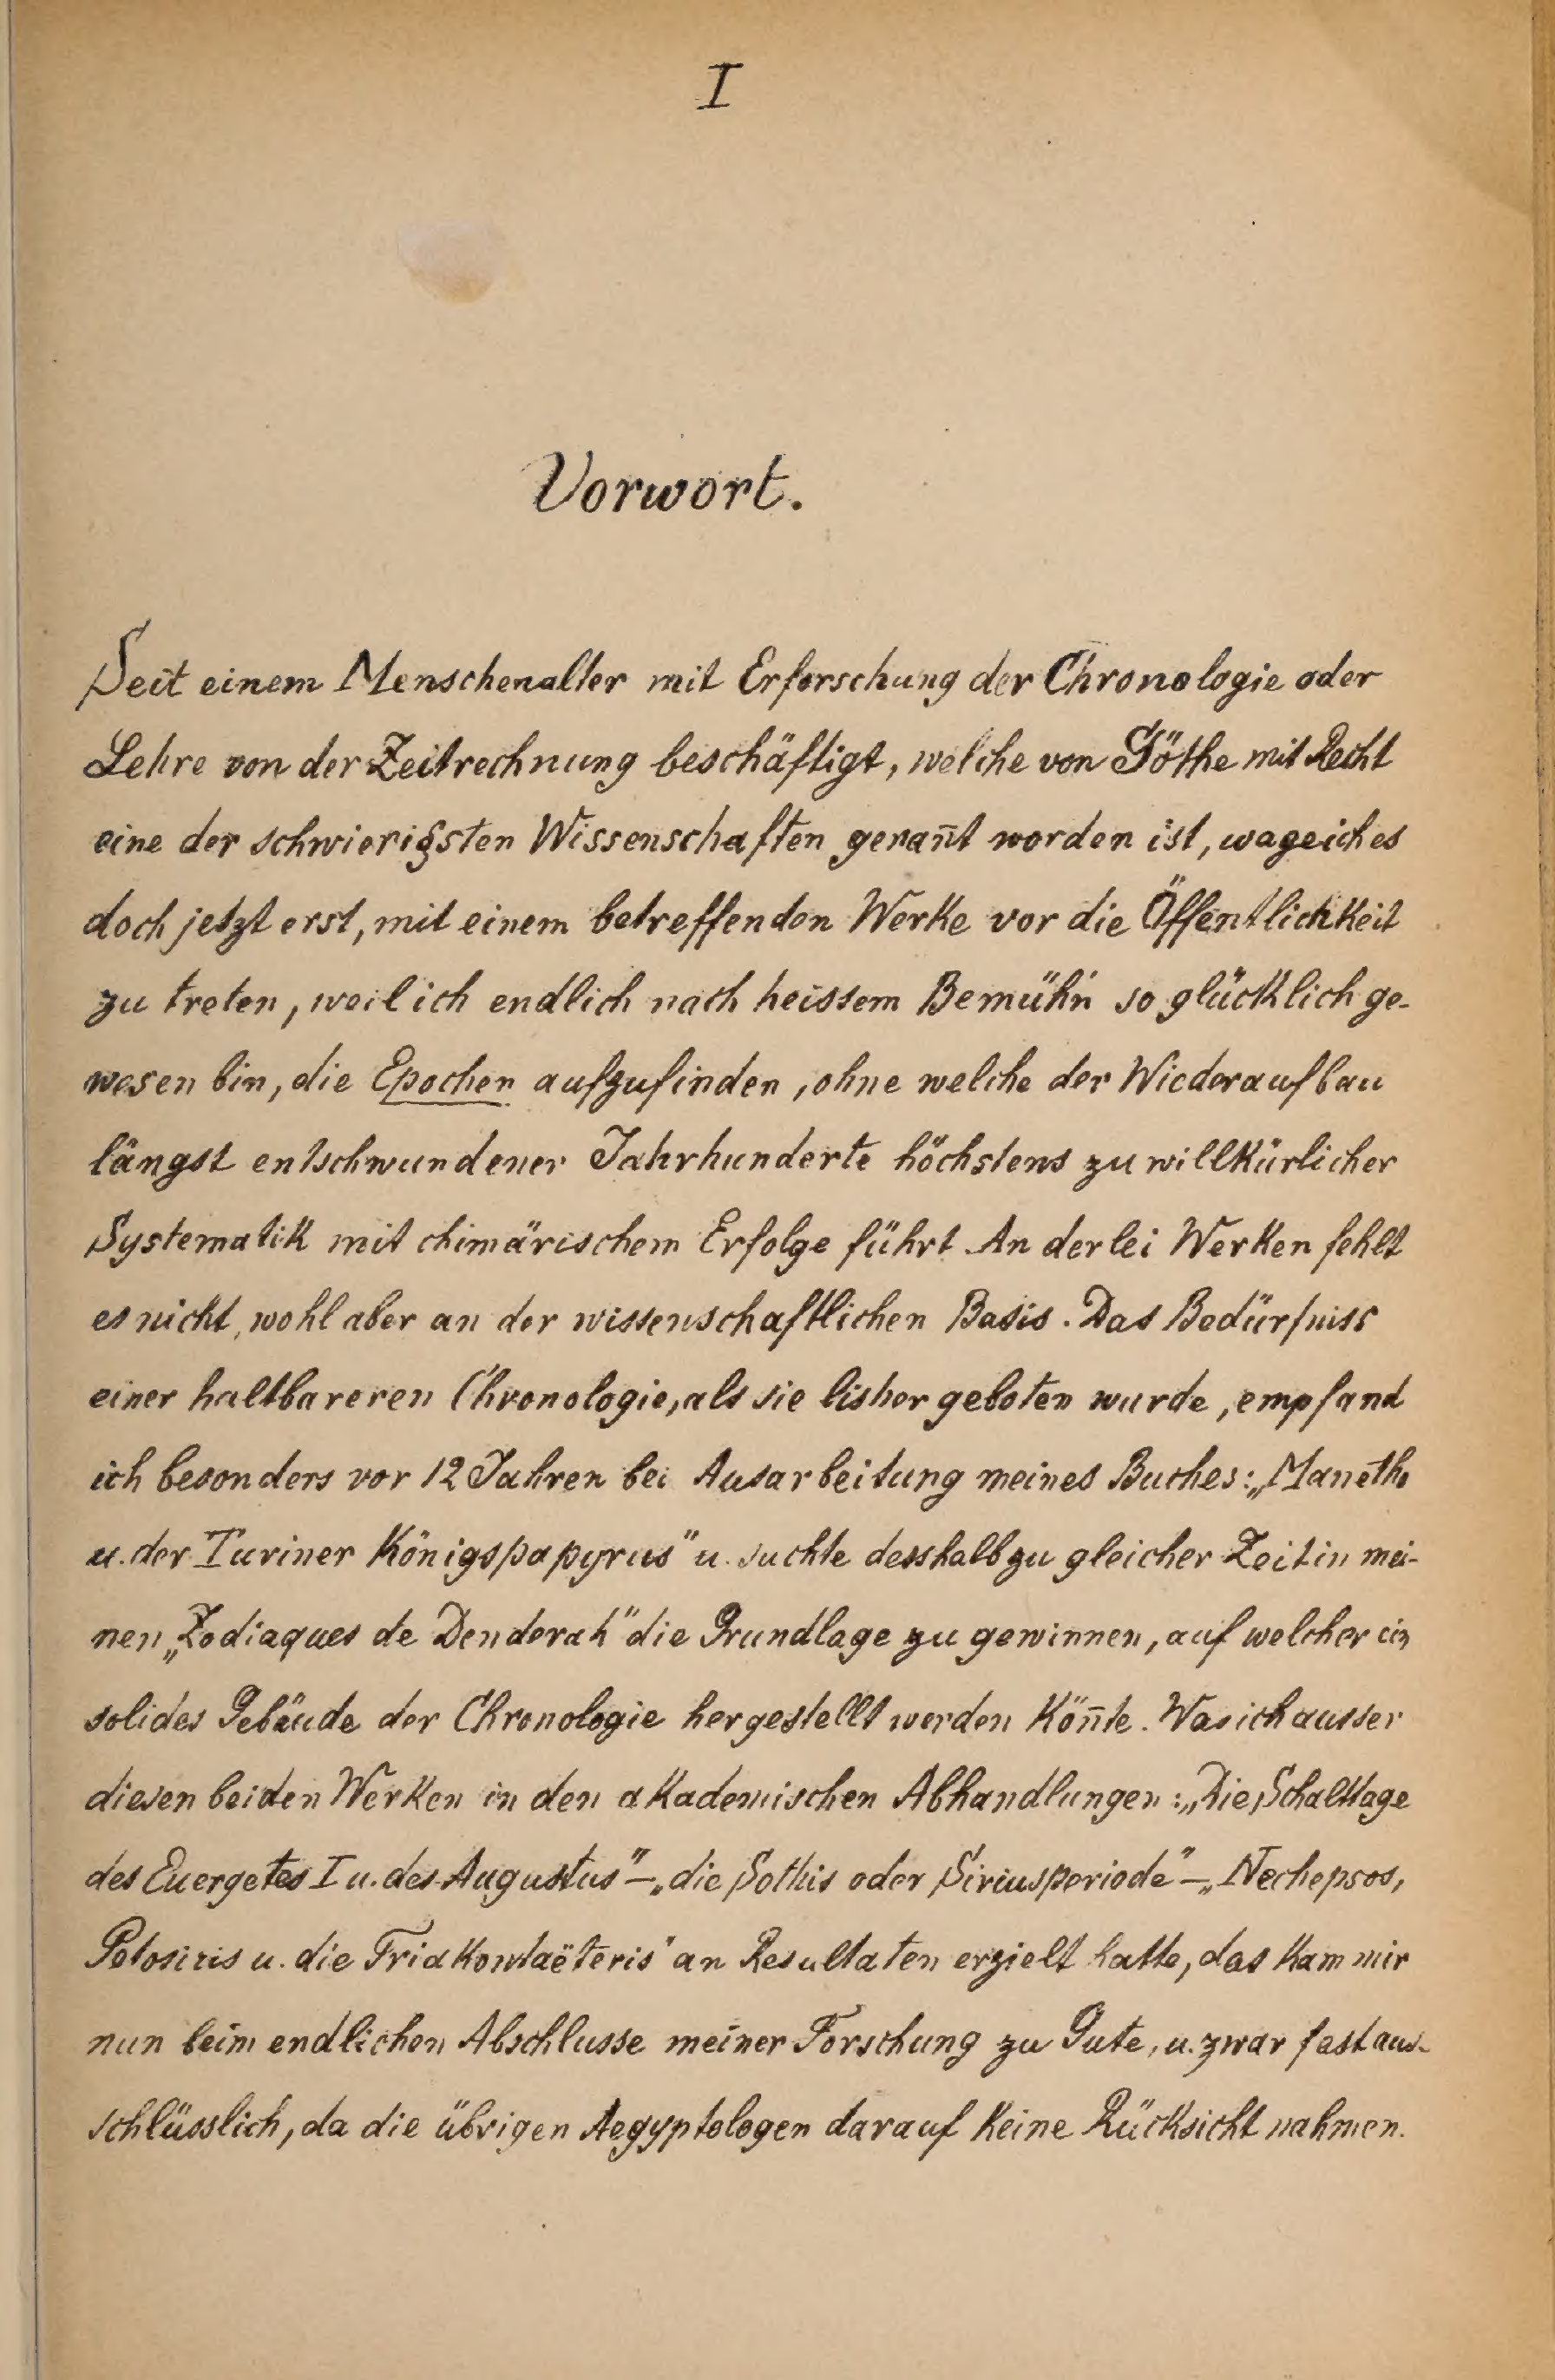 I
Vorwort.
Seit einem Menschenalter mit Erforschung der Chronologie oder
Lehre von der Zeitrechnung beschäftigt, welche von Göthe mit Recht
eine der schwierigsten Wissenschaften genan̄t worden ist, wage ich es
doch jetzt erst, mit einem betreffenden Werke vor die Öffentlichkeit
zu treten, weil ich endlich nach heissem Bemüh'n so glücklich ge-
wesen bin, die Epochen aufzufinden, ohne welche der Wiederaufbau
längst entschwundener Jahrhunderte höchstens zu willkürlicher
Systematik mit chimärischem Erfolge führt. An derlei Werken fehlt
es nicht, wohl aber an der wissenschaftlichen Basis. Das Bedürfniss
einer haltbareren Chronologie, als sie bisher geboten wurde, empfand
ich besonders vor 12 Jahren bei Ausarbeitung meines Buches: „Manetho
u. der Turiner Königspapyrus" u. suchte desshalb zu gleicher Zeit in mei-
nen „Zodiaques de Denderah" die Grundlage zu gewinnen, auf welcher ein
solides Gebäude der Chronologie hergestellt werden kön̄te. Was ich ausser
diesen beiden Werken in den akademischen Abhandlungen: „Die Schalttage
des Euergetes I u. des Augustus" – „die Sothis oder Siriusperiode" – „Nechepsos,
Petosiris u. die Triakontaëteris" an Resultaten erzielt hatte, das kam mir
nun beim endlichen Abschlusse meiner Forschung zu Gute, u. zwar fast aus-
schlüsslich, da die übrigen Aegyptologen darauf keine Rücksicht nahmen.